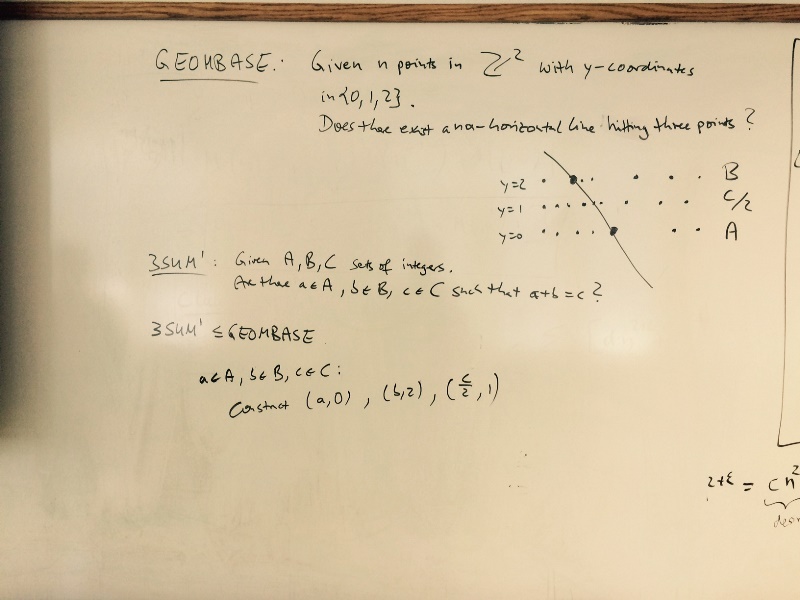 GEOMBASE: Given n points in ℤ² with y-coordinates
in {0,1,2}.
Does there exist a non-horizontal line hitting three points?
y=2 B
y=1 C/2
y=0 A
3SUM': Given A, B, C sets of integers.
Are there a∈A, b∈B, c∈C such that a+b=c?
3SUM' ≤ GEOMBASE
a∈A, b∈B, c∈C:
Construct (a,0), (b,2), (c/2,1)
2+ε = cn²